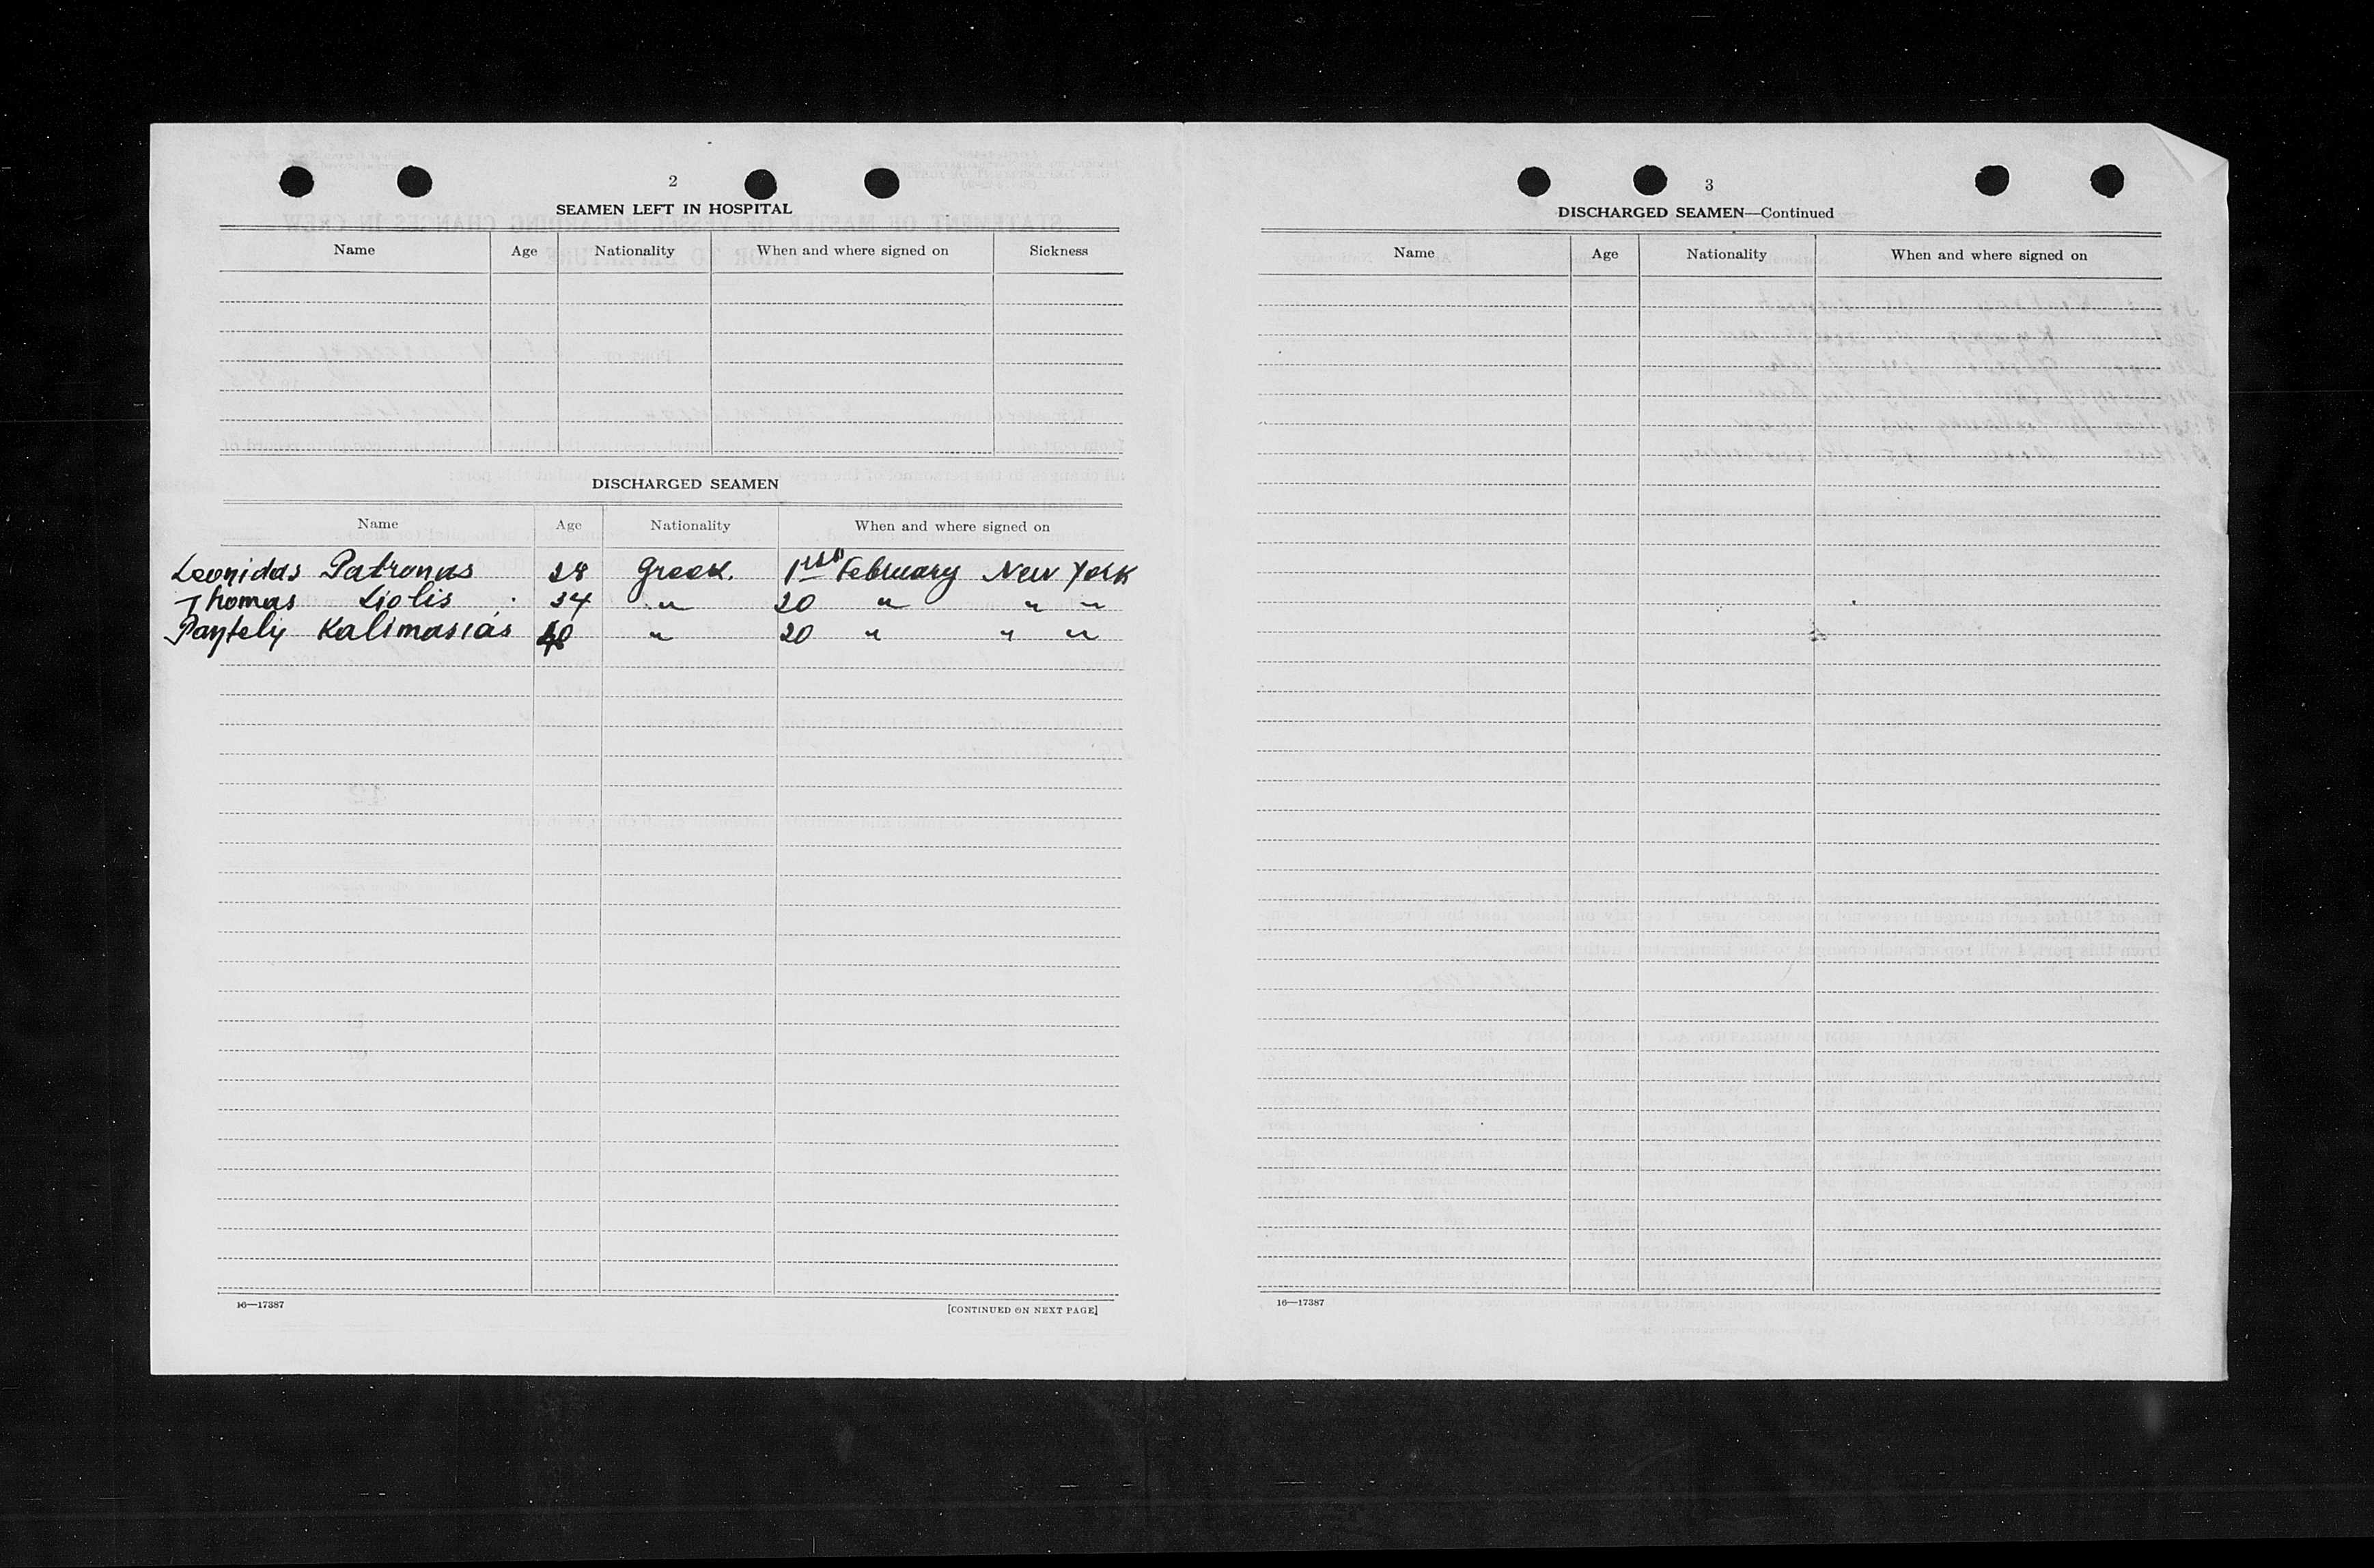 2
SEAMEN LEFT IN HOSPITAL
Name Age Nationality When and where signed on Sickness
DISCHARGED SEAMEN
Name Age Nationality When and where signed on
Leonidas Patronas 28 Greek. 1rst February New York
Thomas Liolis 34 " 20 " " "
Pantelij Kalimasias 40 " 20 " " "
16—17387 [CONTINUED ON NEXT PAGE]
3
DISCHARGED SEAMEN—Continued
Name Age Nationality When and where signed on
16—17387